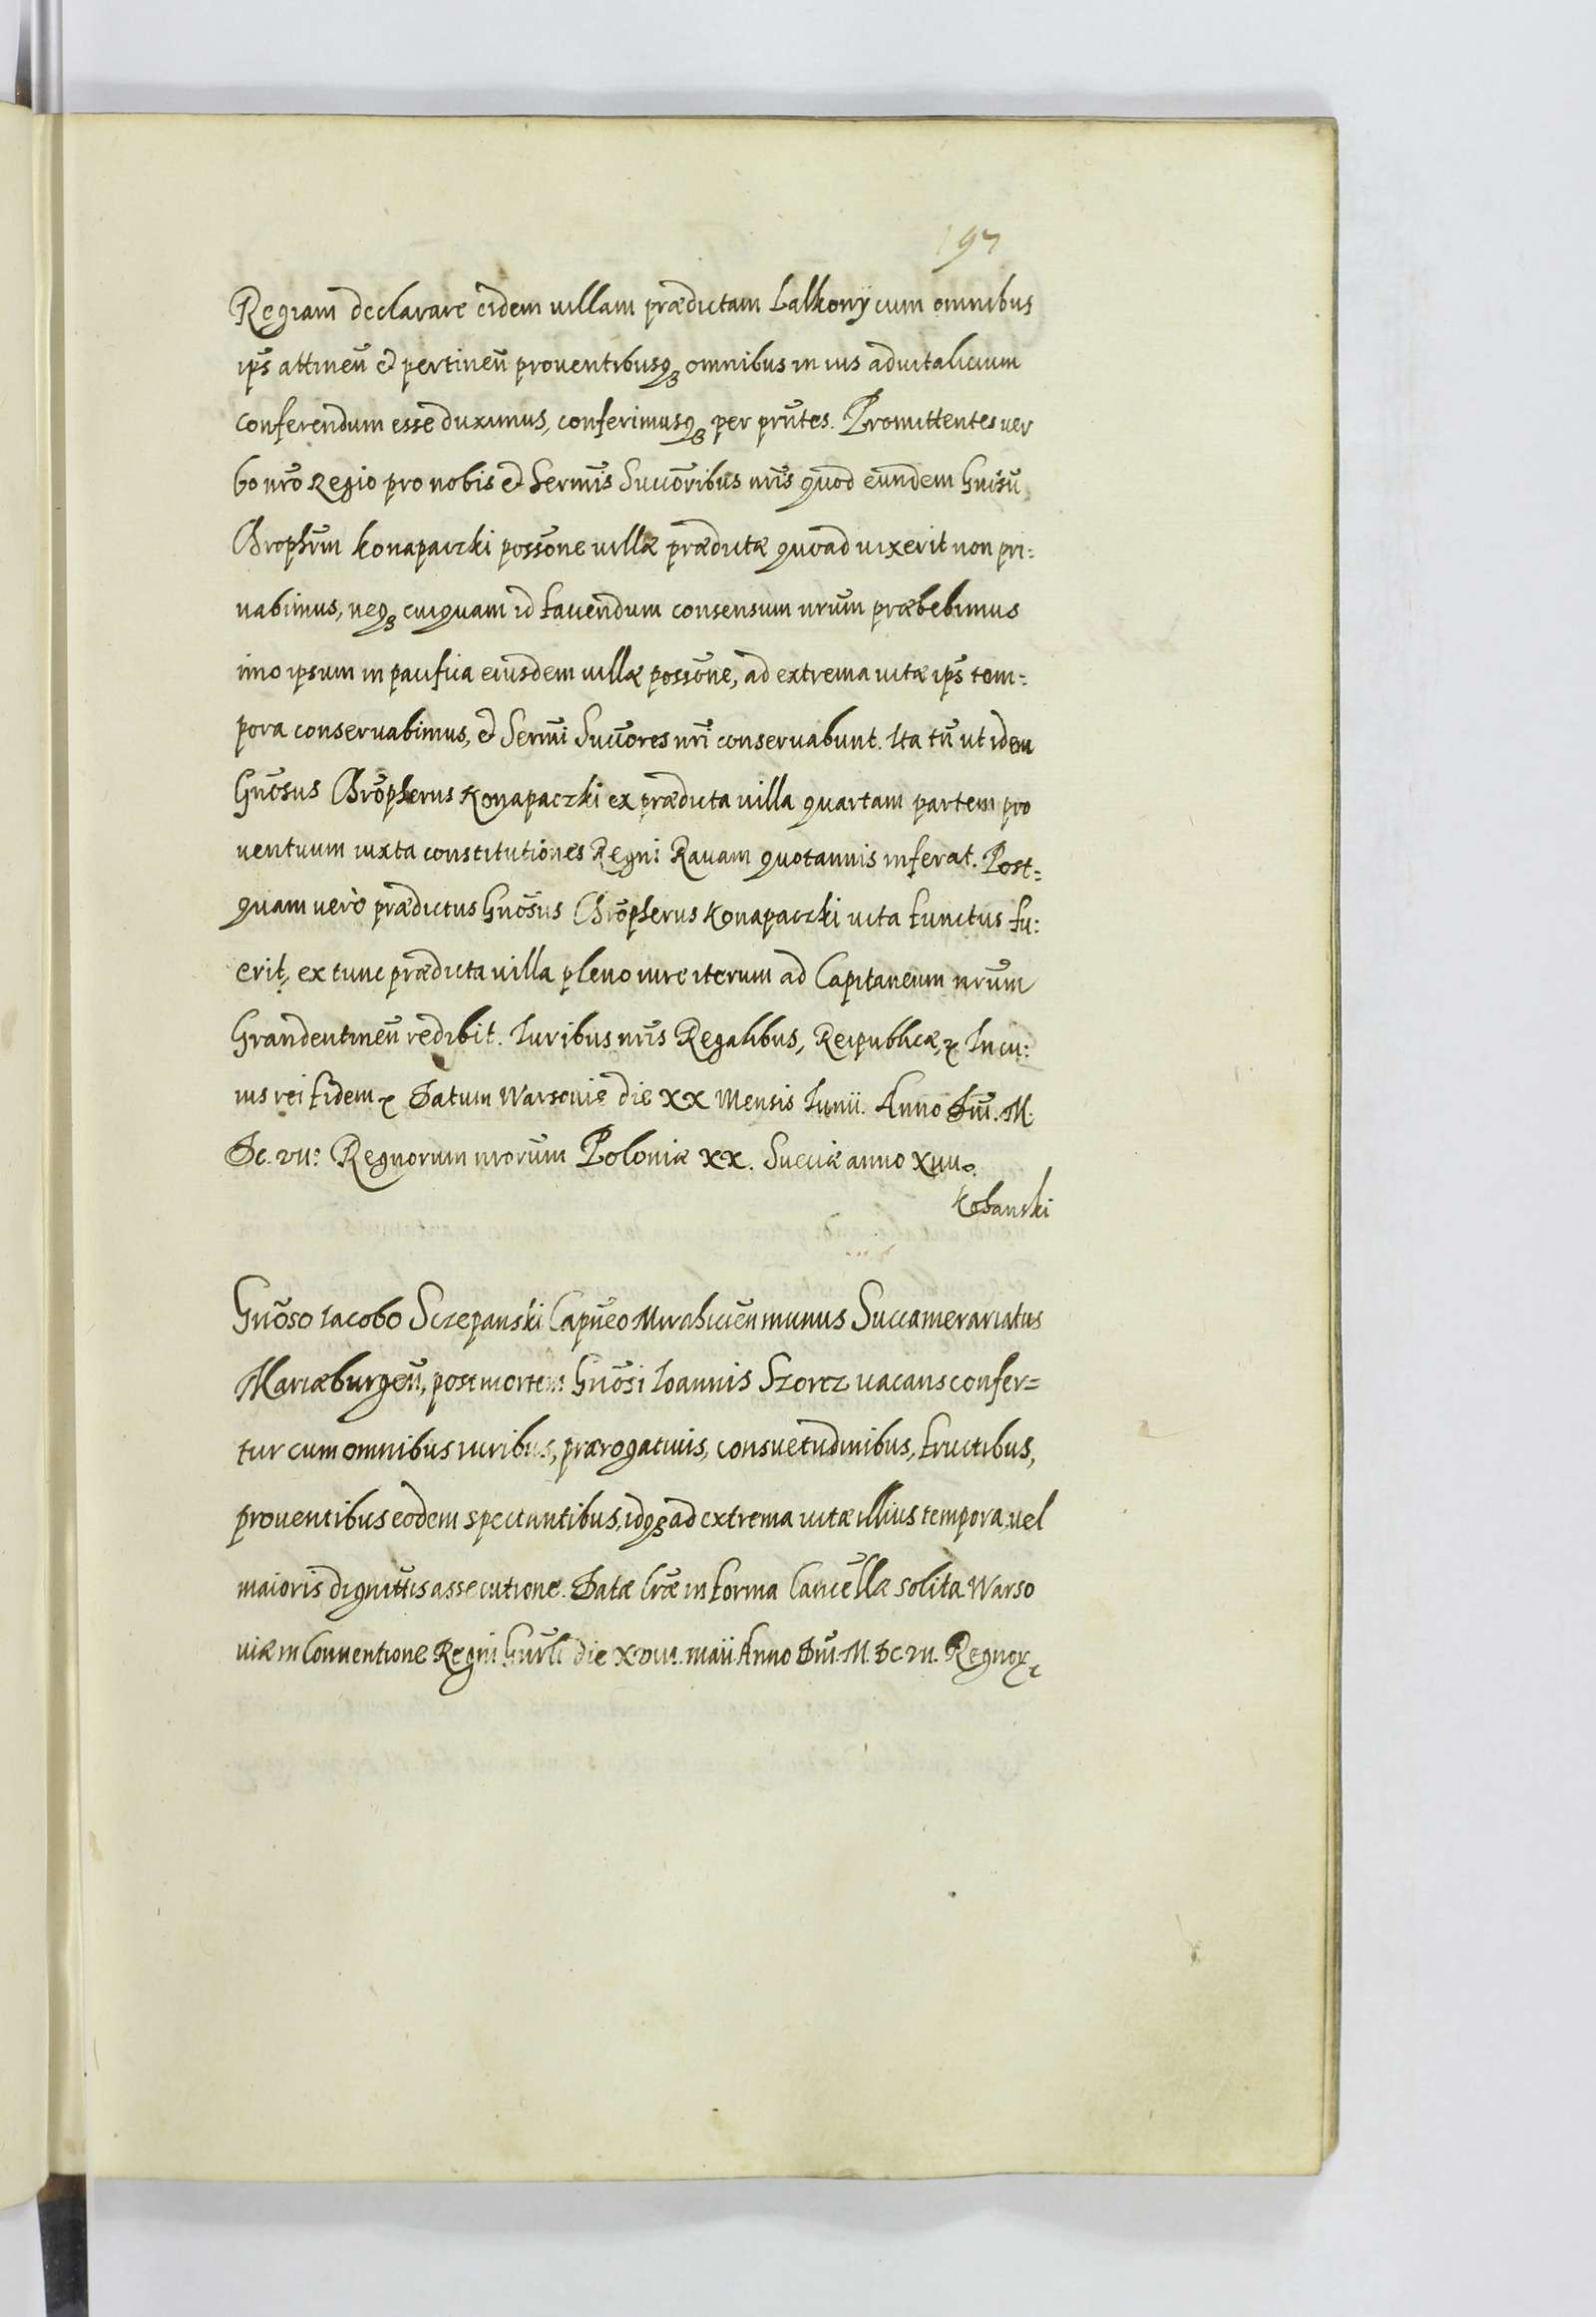 197
Regiam declarare eidem villam prædictam Lalkony cum omnibus
ips̃ attineñ et pertineñ proventibusq₃ omnibus in ius advitalicium
conferendum esse duximus, conferimusq₃ per prñtes. Promittentes ver
bo nr̃o Regio pro nobis et Sermĩs Succõribus nr̃is quod eundem Gnõsũ
Chrophrũm Konapaczki possõne villæ prædictæ quoad vixerit non pri=
vabimus, neq₃ cuiquam id favendum consensum nrũm præbebimus
imo ipsum in pacifica eiusdem villæ possõne, ad extrema vitæ ips̃ tem=
pora conservabimus, et Sermĩ Succõres nr̃i conservabunt. Ita tñ ut idem
Gnõsus Chrõpherus Konapaczki ex prædicta villa quartam partem pro
ventuum iuxta constitutiones Regni Ravam quotannis inferat. Post=
quam verò prædictus Gnõsus Chrõpherus Konapaczki vita functus fu=
erit, ex tunc prædicta villa pleno iure iterum ad Capitaneum nrũm
Graudentineñ redibit. Iuribus nr̃is Regalibus, Reipublicæ, &c Incu=
ius rei fidem &c Datum Warsovie die XX Mensis Iunii. Anno Dnĩ. M.
DC. VII: Regnorum nrorũm Poloniæ XX. Sueciæ anno XIIII.
Kochanski
Gnõso Iacobo Sczepanski Capnẽo Mirachicieñ munus Succamerariatus
Mariæburgeñ, post mortem Gnõsi Ioannis Szorcz vacans confer=
tur cum omnibus iuribus, prærogativis, consuetudinibus, fructibus,
proventibus eodem spectantibus, idq₃ ad extrema vitæ illius tempora, vel
maioris dignittĩs assecutione. Datæ lr̃æ in forma Cancellæ solita Warso
viæ in Conventione Regni Gnrl̃i die XVIII. maii Anno Dnĩ. M. DC VII. Regnor